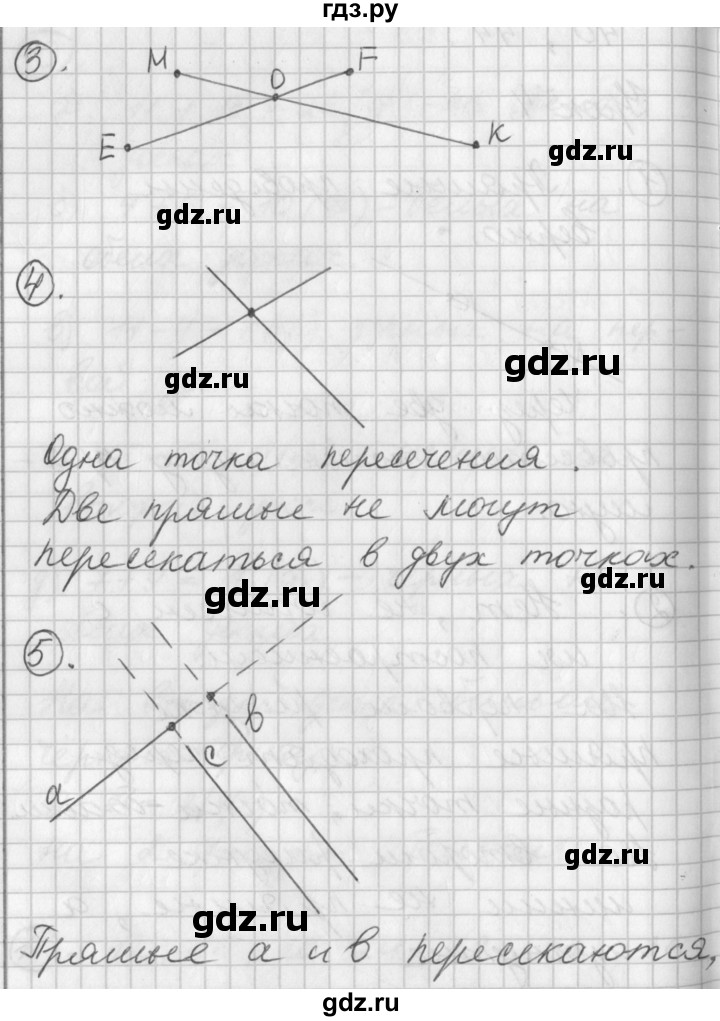 гдз.ру
3.
M
O
F
E
K
gdz.ru
gdz.ru
4.
gdz.ru
gdz.ru
Одна точка пересечения.
Две прямые не могут
пересекаться в двух точках.
gdz.ru
gdz.ru
5.
a
c
b
gdz.ru
gdz.ru
Прямые a и b пересекаются,
gdz.ru